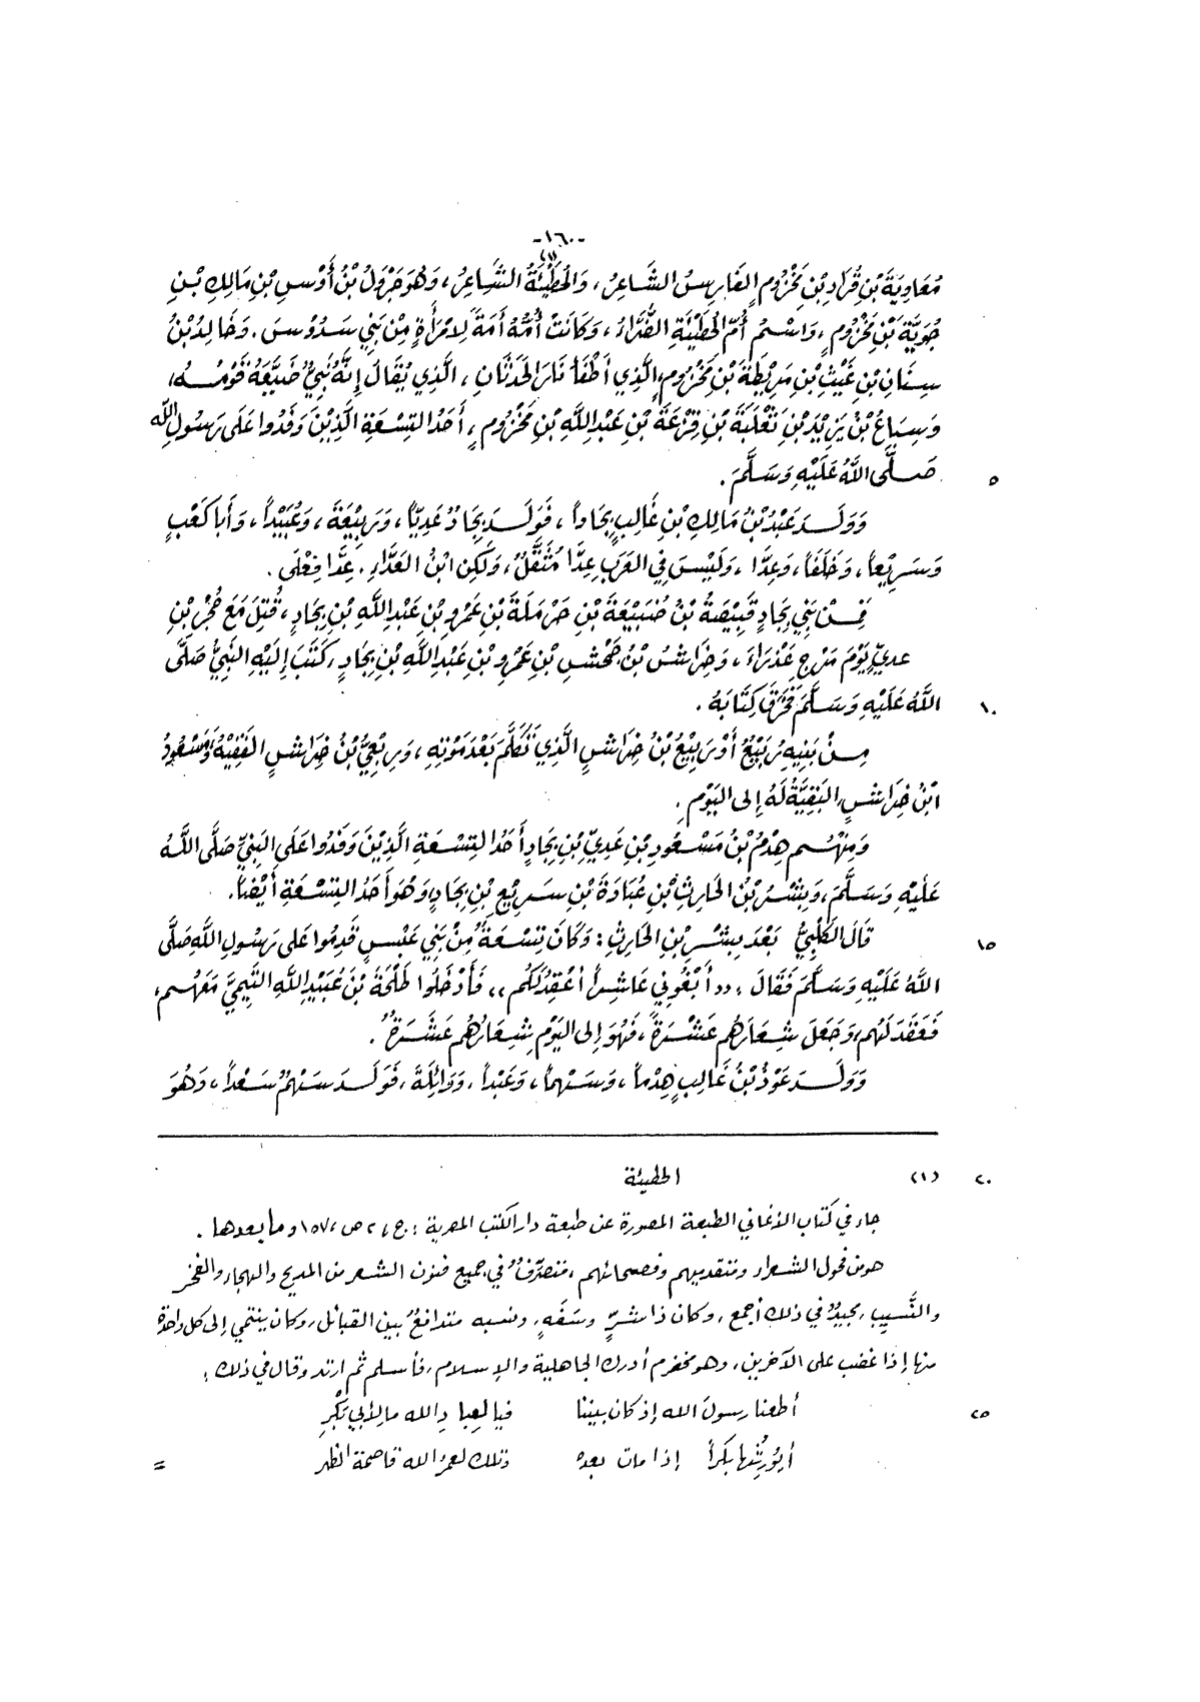 -١٦٠-
مُعَاوِيَةَ بْنِ قُرَادِ بْنِ مَخْزُومٍ الفَارِسُ الشَّاعِرُ، وَالحُطَيْئَةُ (١) الشَّاعِرُ، وَهُوَ جَرْوَلُ بْنُ أَوْسِ بْنِ مَالِكِ بْنِ
جُوَيَّةَ بْنِ مَخْزُومٍ، وَاسْمُ أُمِّ الحُطَيْئَةِ الضَّرَّاءُ، وَكَانَتْ أُمُّهُ أَمَةً لِامْرَأَةٍ مِنْ بَنِي سَدُوسَ. وَخَالِدُ بْنُ
سِنَانِ بْنِ غَيْثِ بْنِ مَرِيطَةَ بْنِ مَخْزُومٍ، الَّذِي أَطْفَأَ نَارَ الحَدَثَانِ، الَّذِي يُقَالُ إِنَّهُ نَبِيٌّ ضَيَّعَهُ قَوْمُهُ،
وَسِبَاعُ بْنُ يَزِيْدَ بْنِ ثَعْلَبَةَ بْنِ قَزْعَةَ بْنِ عَبْدِ اللَّهِ بْنِ مَخْزُومٍ، أَحَدُ التِسْعَةِ الَّذِيْنَ وَفَدُوا عَلَى رَسُولِ اللَّهِ
صَلَّى اللَّهُ عَلَيْهِ وَسَلَّمَ. ٥
وَوَلَدَ عَبْدُ بْنُ مَالِكِ بْنِ غَالِبٍ بِجَاداً، فَوَلَدَ بِجَادٌ عَدِيّاً، وَرَبِيْعَةَ، وَعُبَيْداً، وَأَبَا كَعْبٍ
وَسَرِيْعاً، وَخَلَفاً، وَعِدَّا، وَلَيْسَ فِي العَرَبِ عِدَّا مُثَقَّلٌ، وَلَكِنِ ابْنُ العَدَّاءِ. عِدَّا فِعْلَى.
فَمِنْ بَنِي بِجَادٍ قَبِيْصَةُ بْنُ ضُبَيْعَةَ بْنِ حَرْمَلَةَ بْنِ عَمْرِو بْنِ عَبْدِ اللَّهِ بْنِ بِجَادٍ، قُتِلَ مَعَ حُجْرِ بْنِ
عَدِيٍّ يَوْمَ مَرْجِ عَذْرَاءَ، وَخِرَاشُ بْنُ جَحْشِ بْنِ عَمْرِو بْنِ عَبْدِ اللَّهِ بْنِ بِجَادٍ، كَتَبَ إِلَيْهِ النَّبِيُّ صَلَّى
اللَّهُ عَلَيْهِ وَسَلَّمَ فَخَرَقَ كِتَابَهُ. ١٠
مِنْ بَنِيهِ رُبَيِّعُ أَوْ رَبِيْعُ بْنُ خِرَاشٍ الَّذِي تَكَلَّمَ بَعْدَ مَوْتِهِ، وَرِبْعِيُّ بْنُ خِرَاشٍ الفَقِيْهُ، وَمَسْعُودُ
ابْنُ خِرَاشٍ، البَقِيَّةُ لَهُ إِلَى اليَوْمِ.
وَمِنْهُم هِدْمُ بْنُ مَسْعُودِ بْنِ عَدِيِّ بْنِ بِجَادٍ أَحَدُ التِسْعَةِ الَّذِيْنَ وَفَدُوا عَلَى النَبِيِّ صَلَّى اللَّهُ
عَلَيْهِ وَسَلَّمَ، وَبِشْرُ بْنُ الحَارِثِ بْنِ عُبَادَةَ بْنِ سَرِيْعِ بْنِ بِجَادٍ، وَهُوَ أَحَدُ التِسْعَةِ أَيْضاً.
قَالَ الكَلْبِيُّ بَعْدَ بِشْرِ بْنِ الحَارِثِ: وَكَانَ تِسْعَةٌ مِنْ بَنِي عَبْسٍ قَدِمُوا عَلَى رَسُولِ اللَّهِ صَلَّى ١٥
اللَّهُ عَلَيْهِ وَسَلَّمَ فَقَالَ: «أَبْغُونِي عَاشِراً أَعْقِدُ لَكُم»، فَأَدْخَلُوا طَلْحَةَ بْنَ عُبَيْدِ اللَّهِ التَّيْمِيَّ مَعَهُم،
فَعَقَدَ لَهُم، وَجَعَلَ شِعَارَهُم عَشْرَةً، فَهُوَ إِلَى اليَوْمِ شِعَارُهُم عَشَرَةٌ.
وَوَلَدَ عَوْذُ بْنُ غَالِبٍ هِدْماً، وَسَهْماً، وَعَبْداً، وَوَائِلَةَ، فَوَلَدَ سَهْمٌ سَعْداً، وَهُوَ
(١) الحطيئة ٢٠
جاء في كتاب الأغاني الطبعة المصورة عن طبعة دار الكتب المصرية: ج ٢، ص ١٥٧، وما بعدها.
هو من فحول الشعراء ومتقدميهم وفصحائهم، متصرّفٌ في جميع فنون الشعر من المديح والهجاء والفخر
والنَّسيب، مجيدٌ في ذلك أجمع، وكان ذا شرٍّ وسَفَهٍ، ونسبه متدافعٌ بين القبائل، وكان ينتمي إلى كل واحدة
منها إذا غضب على الآخرين، وهو مخضرم أدرك الجاهلية والإسلام، فأسلم ثم ارتد وقال في ذلك:
أطعنا رسولَ الله إذ كان بيننا فيا لَعِبادِ الله ما لِأَبي بَكْرِ ٢٥
أيُورِثُها بَكراً إذا مات بعده وتلك لعمرُ الله قاصمة الظهر
=